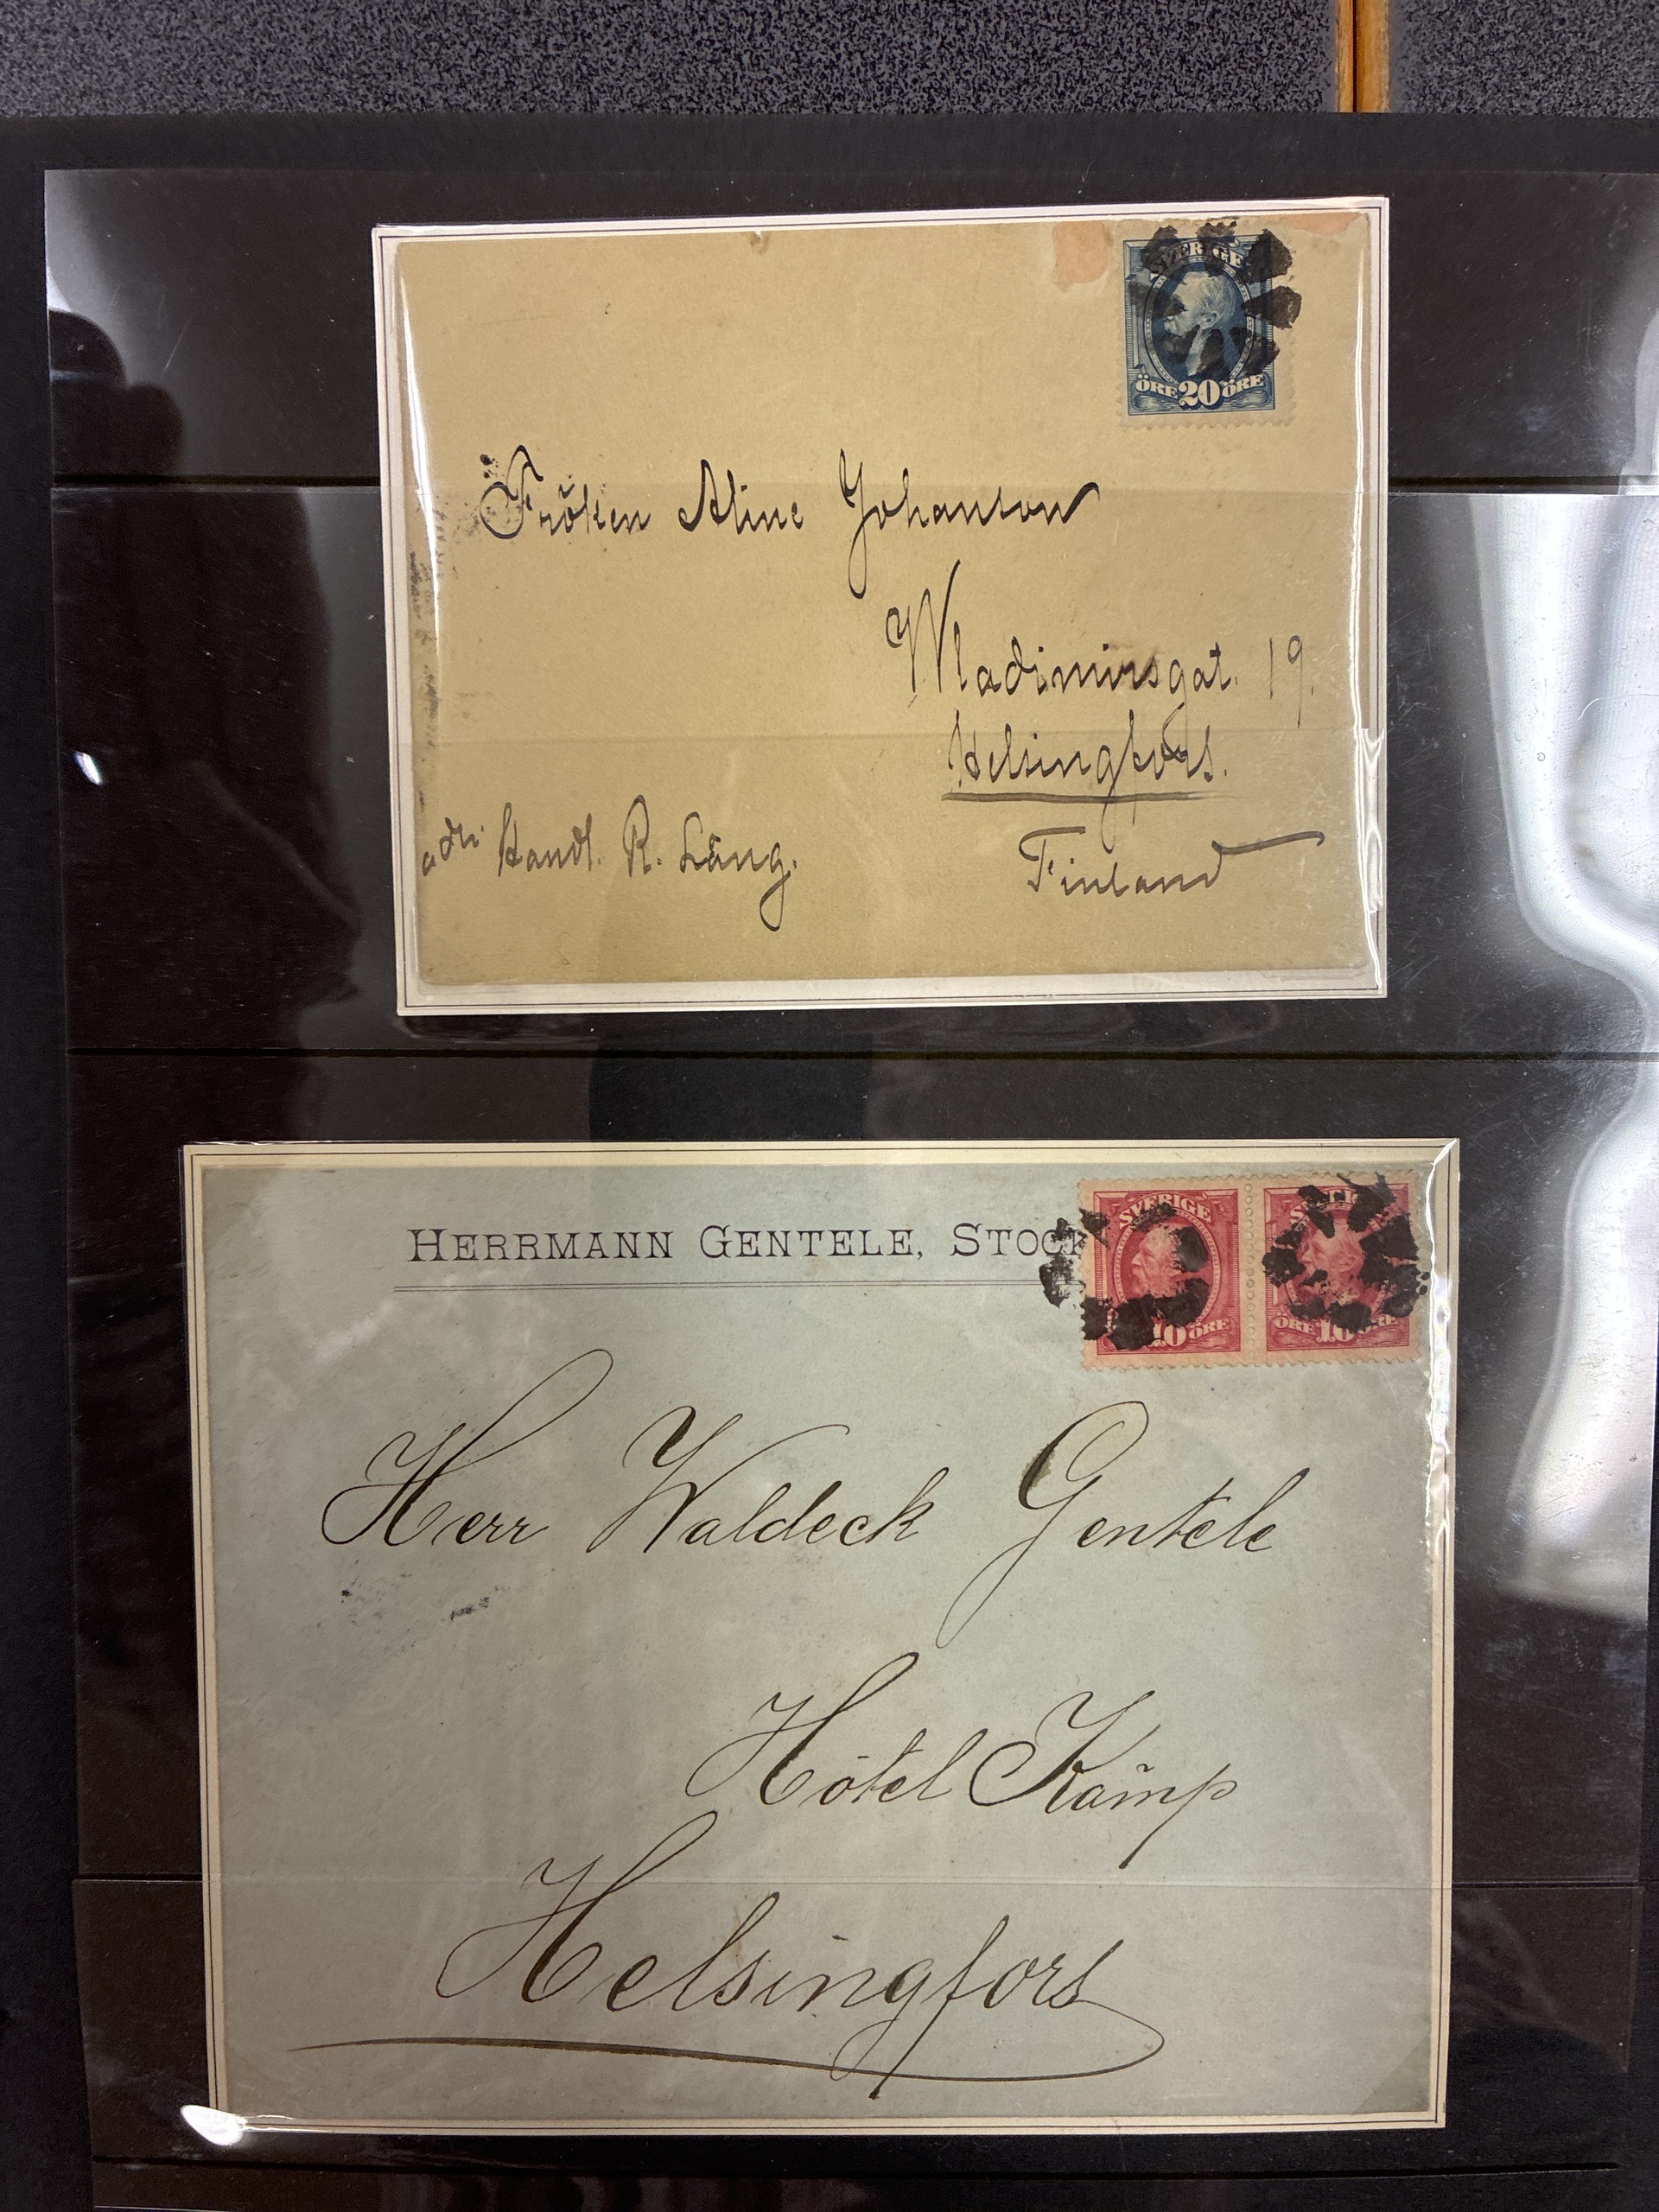 SVERIGE
ÖRE 20 ÖRE
Fröken Aline Johanson
Wladimirsgat. 19.
Helsingfors.
adr. Handl. R. Lång.
Finland
HERRMANN GENTELE, STOCK
SVERIGE
10 ÖRE
ÖRE 10 ÖRE
Herr Waldeck Gentele
Hôtel Kämp
Helsingfors